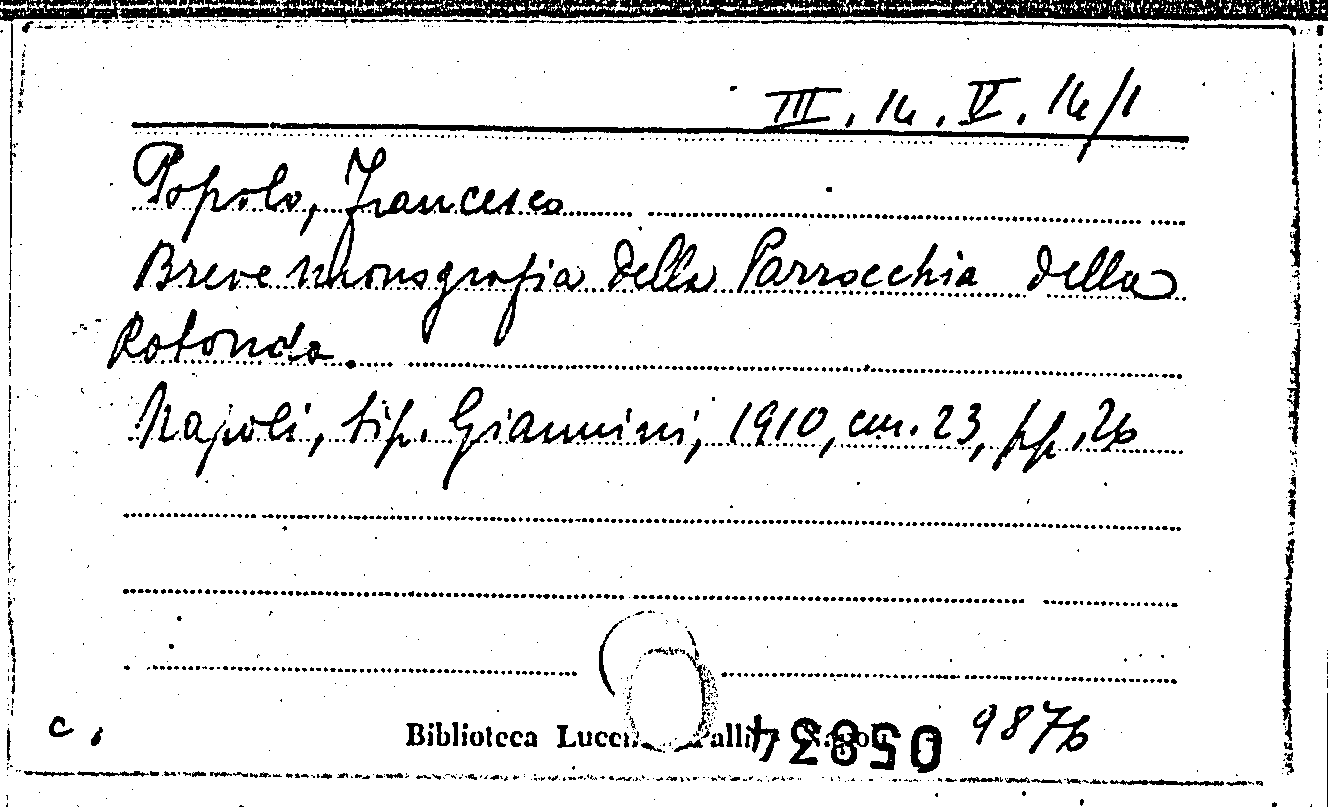 III. 14. V. 14/1
Popolo, Francesco
Breve monografia della Parrocchia della
Rotonda.
Napoli, tip. Giannini, 1910, cm. 23, pp. 26
c.
Biblioteca 9876
05834